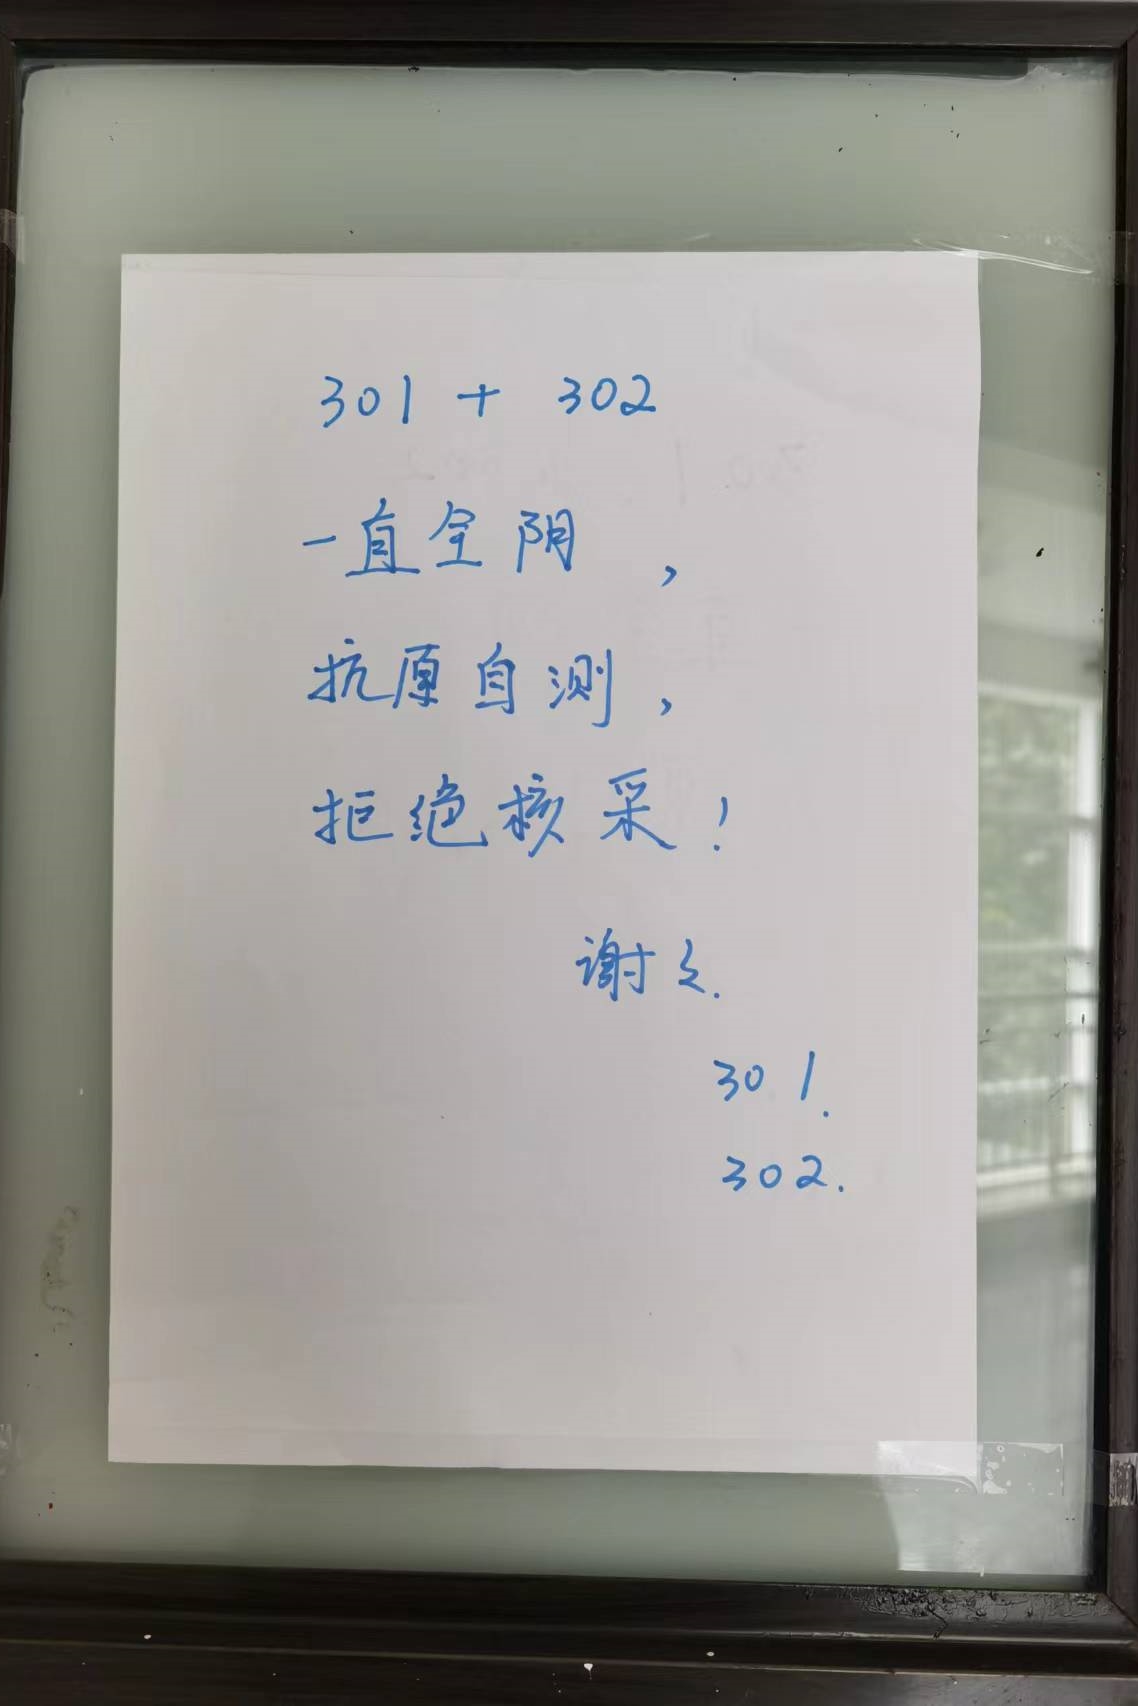 301 + 302
一直全阴，
抗原自测，
拒绝核采！
谢谢.
301.
302.